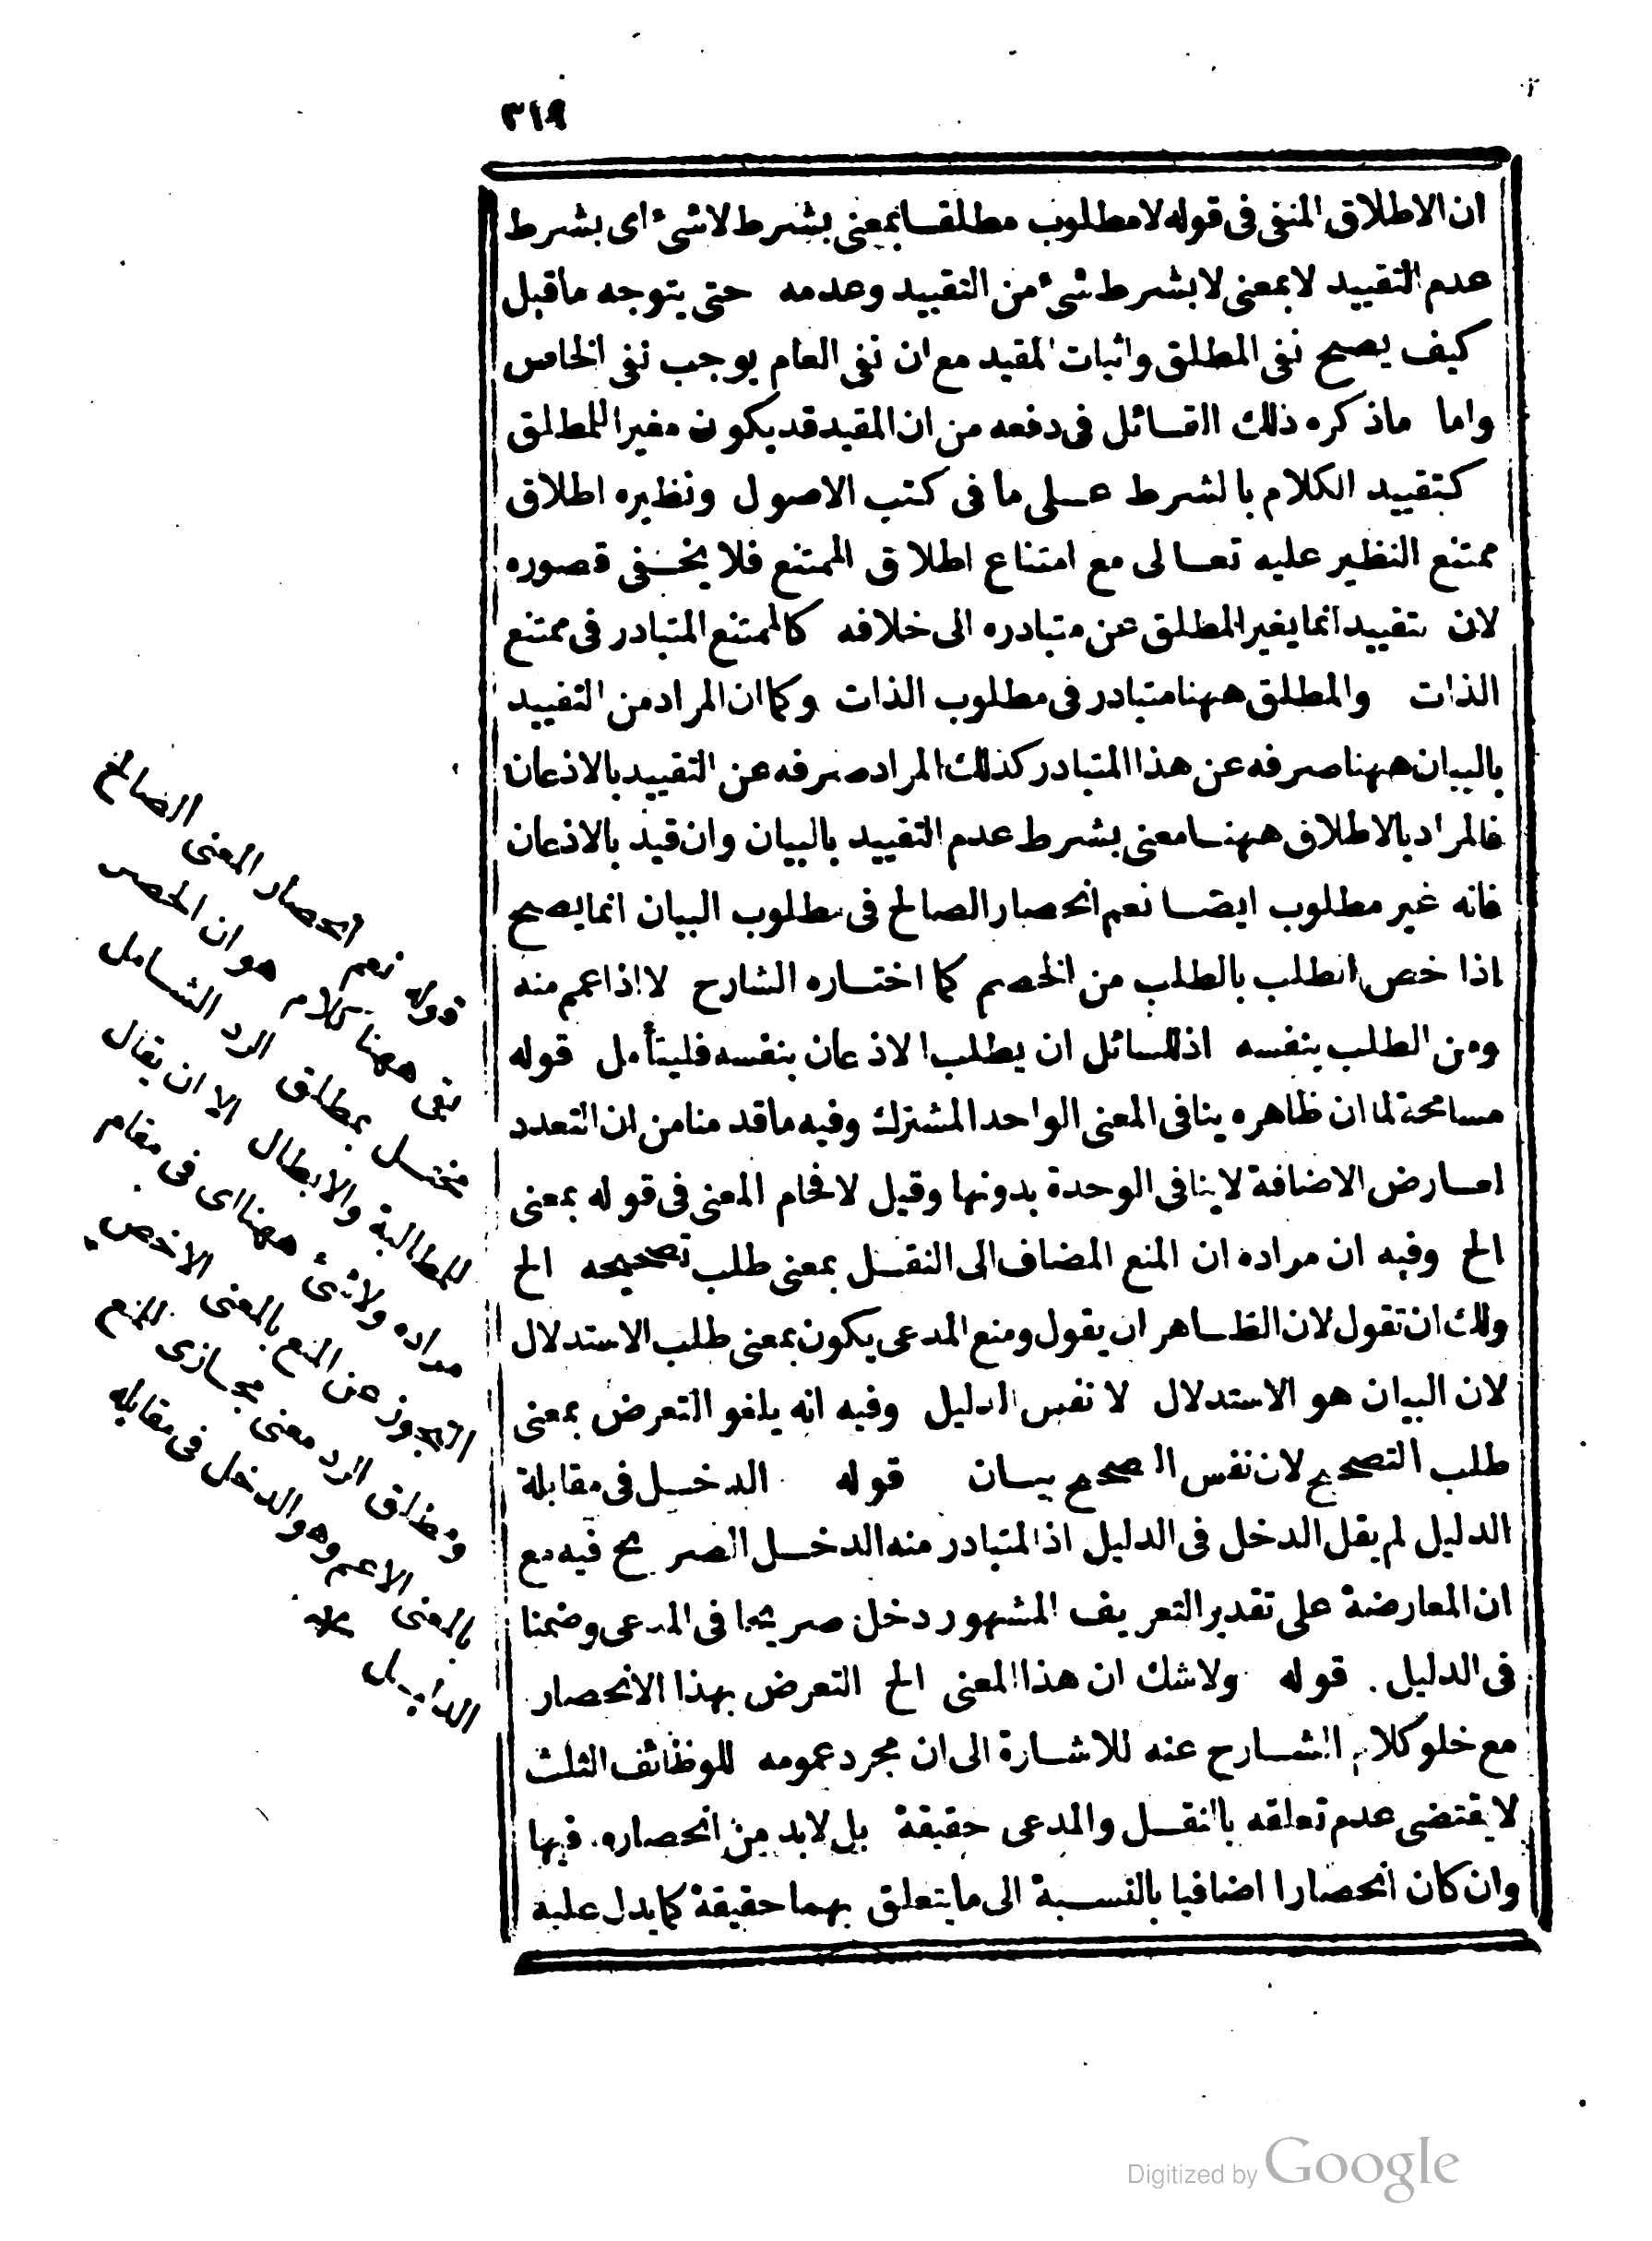 ٣١٩
ان الاطلاق المنفى فى قوله لا مطلوب مطلقا بمعنى بشرط لا شئ اى بشرط
عدم التقييد لا بمعنى لا بشرط شئ من التقييد وعدمه حتى يتوجه ما قيل
كيف يصح نفى المطلق واثبات المقيد مع ان نفى العام يوجب نفى الخاص
واما ماذكره ذلك القائل فى دفعه من ان المقيد قد يكون مغيرا للمطلق
كتقييد الكلام بالشرط على ما فى كتب الاصول ونظيره اطلاق
ممتنع النظير عليه تعالى مع امتناع اطلاق الممتنع فلا يخفى قصوره
لان تقييد انما يغير المطلق عن متبادره الى خلافه كالممتنع المتبادر فى ممتنع
الذات والمطلق ههنا متبادر فى مطلوب الذات وكما ان المراد من التقييد
بالبيان ههنا صرفه عن هذا المتبادر كذلك المراد صرفه عن التقييد بالاذعان
فالمراد بالاطلاق ههنا معنى بشرط عدم التقييد بالبيان وان قيد بالاذعان
فانه غير مطلوب ايضا نعم انحصار الصالح فى مطلوب البيان انما يصح
اذا خص الطلب بالطلب من الخصم كما اختاره الشارح لا اذا عمم منه
ومن الطلب بنفسه اذ للسائل ان يطلب الاذعان بنفسه فليتأمل قوله
مسامحة لما ان ظاهره ينافى المعنى الواحد المشترك وفيه ما قدمنا من ان التعدد
لعارض الاضافة لا ينافى الوحدة بدونها وقيل لاقحام المعنى فى قوله بمعنى
الخ وفيه ان مراده ان المنع المضاف الى النقل بمعنى طلب تصحيحه الخ
ولك ان تقول لان الظاهر ان يقول ومنع المدعى يكون بمعنى طلب الاستدلال
لان البيان هو الاستدلال لا نفس الدليل وفيه انه يلغو التعرض بمعنى
طلب التصحيح لان نفس الصحيح بيان قوله الدخل فى مقابلة
الدليل لم يقل الدخل فى الدليل اذ المتبادر منه الدخل الصريح فيه مع
ان المعارضة على تقدير التعريف المشهور دخل صريحا فى المدعى وضمنا
فى الدليل . قوله ولا شك ان هذا المعنى الخ التعرض بهذا الانحصار
مع خلو كلام الشارح عنه للاشارة الى ان مجرد عمومه للوظائف الثلث
لا يقتضى عدم تعلقه بالنقل والمدعى حقيقة بل لابد من انحصاره فيها
وان كان انحصارا اضافيا بالنسبة الى ما يتعلق بهما حقيقة كما يدل عليه
قوله نعم انحصار المعنى الصالح
بقى ههنا كلام هو ان الحصر
مختل بمطلق الرد الشامل
للمطالبة والابطال الا ان يقال
مراده ولا شئ ههنا اى فى مقام
التجوز عن المنع بالمعنى الاخص
ومطلق الرد معنى مجازى للمنع
بالمعنى الاعم وهو الدخل فى مقابلة
الدليل
Digitized by Google